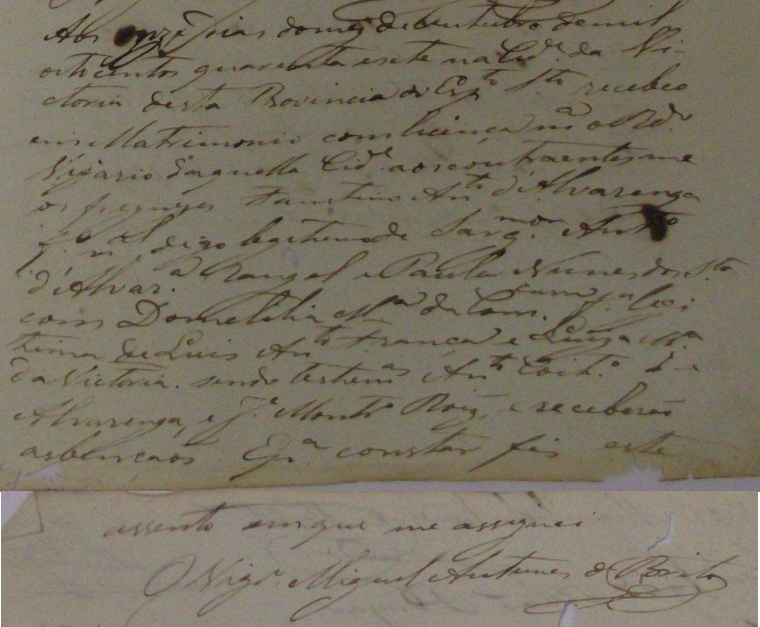 Aos onze dias do mes de Outubro de mil
oitocentos quarenta e sete na Cid.e da Vi-
ctoria desta Provincia do Esp.to S.to recebeo
em Matrimonio com licença m.a o Rd.o
Vigario daquella Cid.e aos contraentes me
os freguezes Faustino An.to d'Alvarenga
f.o digo legitimo de Sarg.mor Ant.o
d'Alvar.a Rangel e Paula Nunes dos S.tos
com Domethilia M.a da Com. f.a legi
tima de Luis An.to França e Luiza M.a
da Victoria. sendo testem.as An.to Coit.o d'
Alvarenga, e J.e Mont.o Roiz, e receberão
as bençaos E p.a constar fis este
assento em que me assignei
O Vigr.o Miguel Antunes de Brito